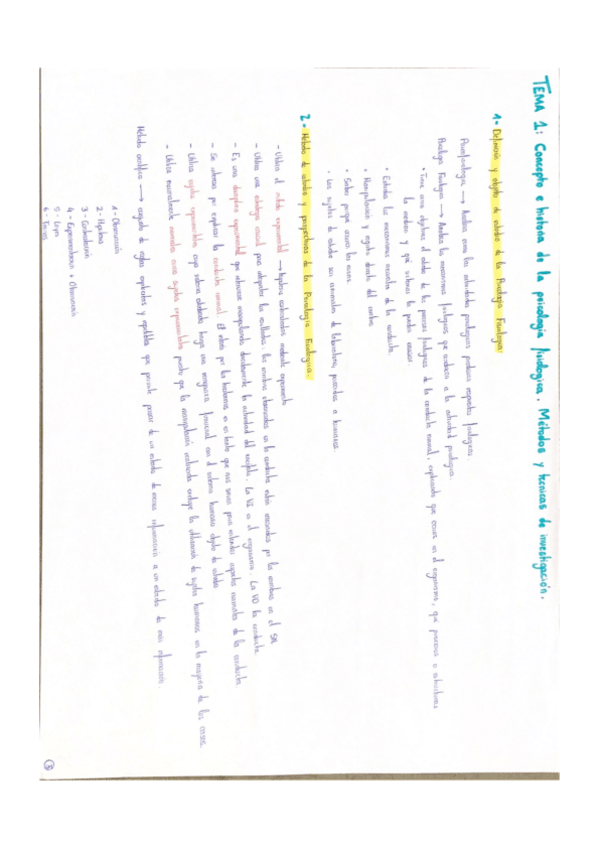 TEMA 1: Concepto e historia de la psicología fisiológica. Métodos y técnicas de investigación.
1- Definición y objeto de estudio de la Psicología Fisiológica
Psicofisiología → Analiza como las actividades psicológicas producen respuestas fisiológicas.
Psicología Fisiológica → Analiza los mecanismos fisiológicos que subyacen a la actividad psicológica.
• Tiene como objetivo el estudio de los procesos fisiológicos de la conducta normal, explicando que ocurre en el organismo, que procesos o estructuras
la median y que sistemas la pueden
• Estudia los mecanismos neurales de la conducta.
• Manipulación y registro directo del cerebro
• Saber porque ocurren las cosas.
• Los sujetos de estudio son animales de laboratorio, parecidos a humanos.
2- Método de estudio y perspectivas de la Psicología Fisiológica.
- Utiliza el método experimental → hipótesis contrastadas mediante experimento
- Utiliza una estrategia causal para interpretar los resultados: los cambios observados en la conducta están causados por los cambios en el SN
- Es una disciplina experimental que interviene manipulando directamente la actividad del encéfalo. La VI es el organismo. La VD la conducta.
- Se interesa por explicar la conducta normal. El interés por los trastornos es en tanto que nos sirven para entender aspectos normales de la conducta.
- Utiliza sujetos experimentales cuyo sistema estudiado tenga una semejanza funcional con el sistema humano objeto de estudio
- Utiliza normalmente animales como sujetos experimentales puesto que la manipulación realizada excluye la utilización de sujetos humanos en la mayoría de los casos.
Método científico → conjunto de reglas explicitas y repetibles que permite pasar de un estado de menos información a un estado de más información
1- Observación
2- Hipótesis
3- Contrastación
4- Experimentación + Observación
5- Leyes
6- Teorías